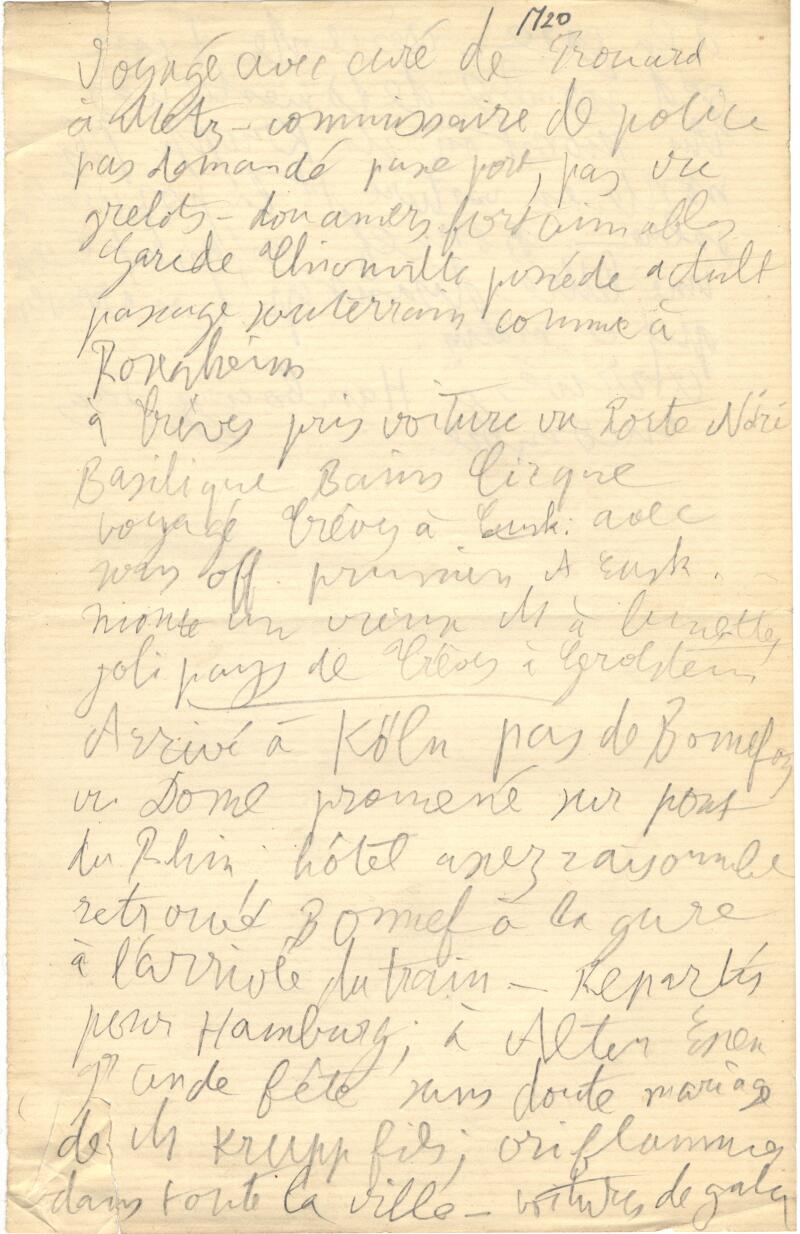 1720
Voyagé avec curé de Frouard
à Metz - commissaire de police
pas demandé passeport, pas vu
grelots - douaniers fort aimables
Gare de Thionville possède actullt
passage souterrain comme à
Rosenheim
à Trèves pris voiture vu Porte Noire
Basilique Bains Cirque
voyagé Trèves à Eusk. avec
sous off. prussien A Eusk.
monte un vieux M à lunettes
joli pays de Trèves à Gerolstein
Arrivé à Köln pas de Bonnefoy
vu Dome promené sur pont
du Rhin; hôtel assez raisonnable
retrouvé Bonnef à la gare
à l'arrivée du train - Repartis
pour Hamburg; à Alten Essen
grande fête sans doute mariage
de M Krupp fils; oriflammes
dans toute la ville - voitures de gala